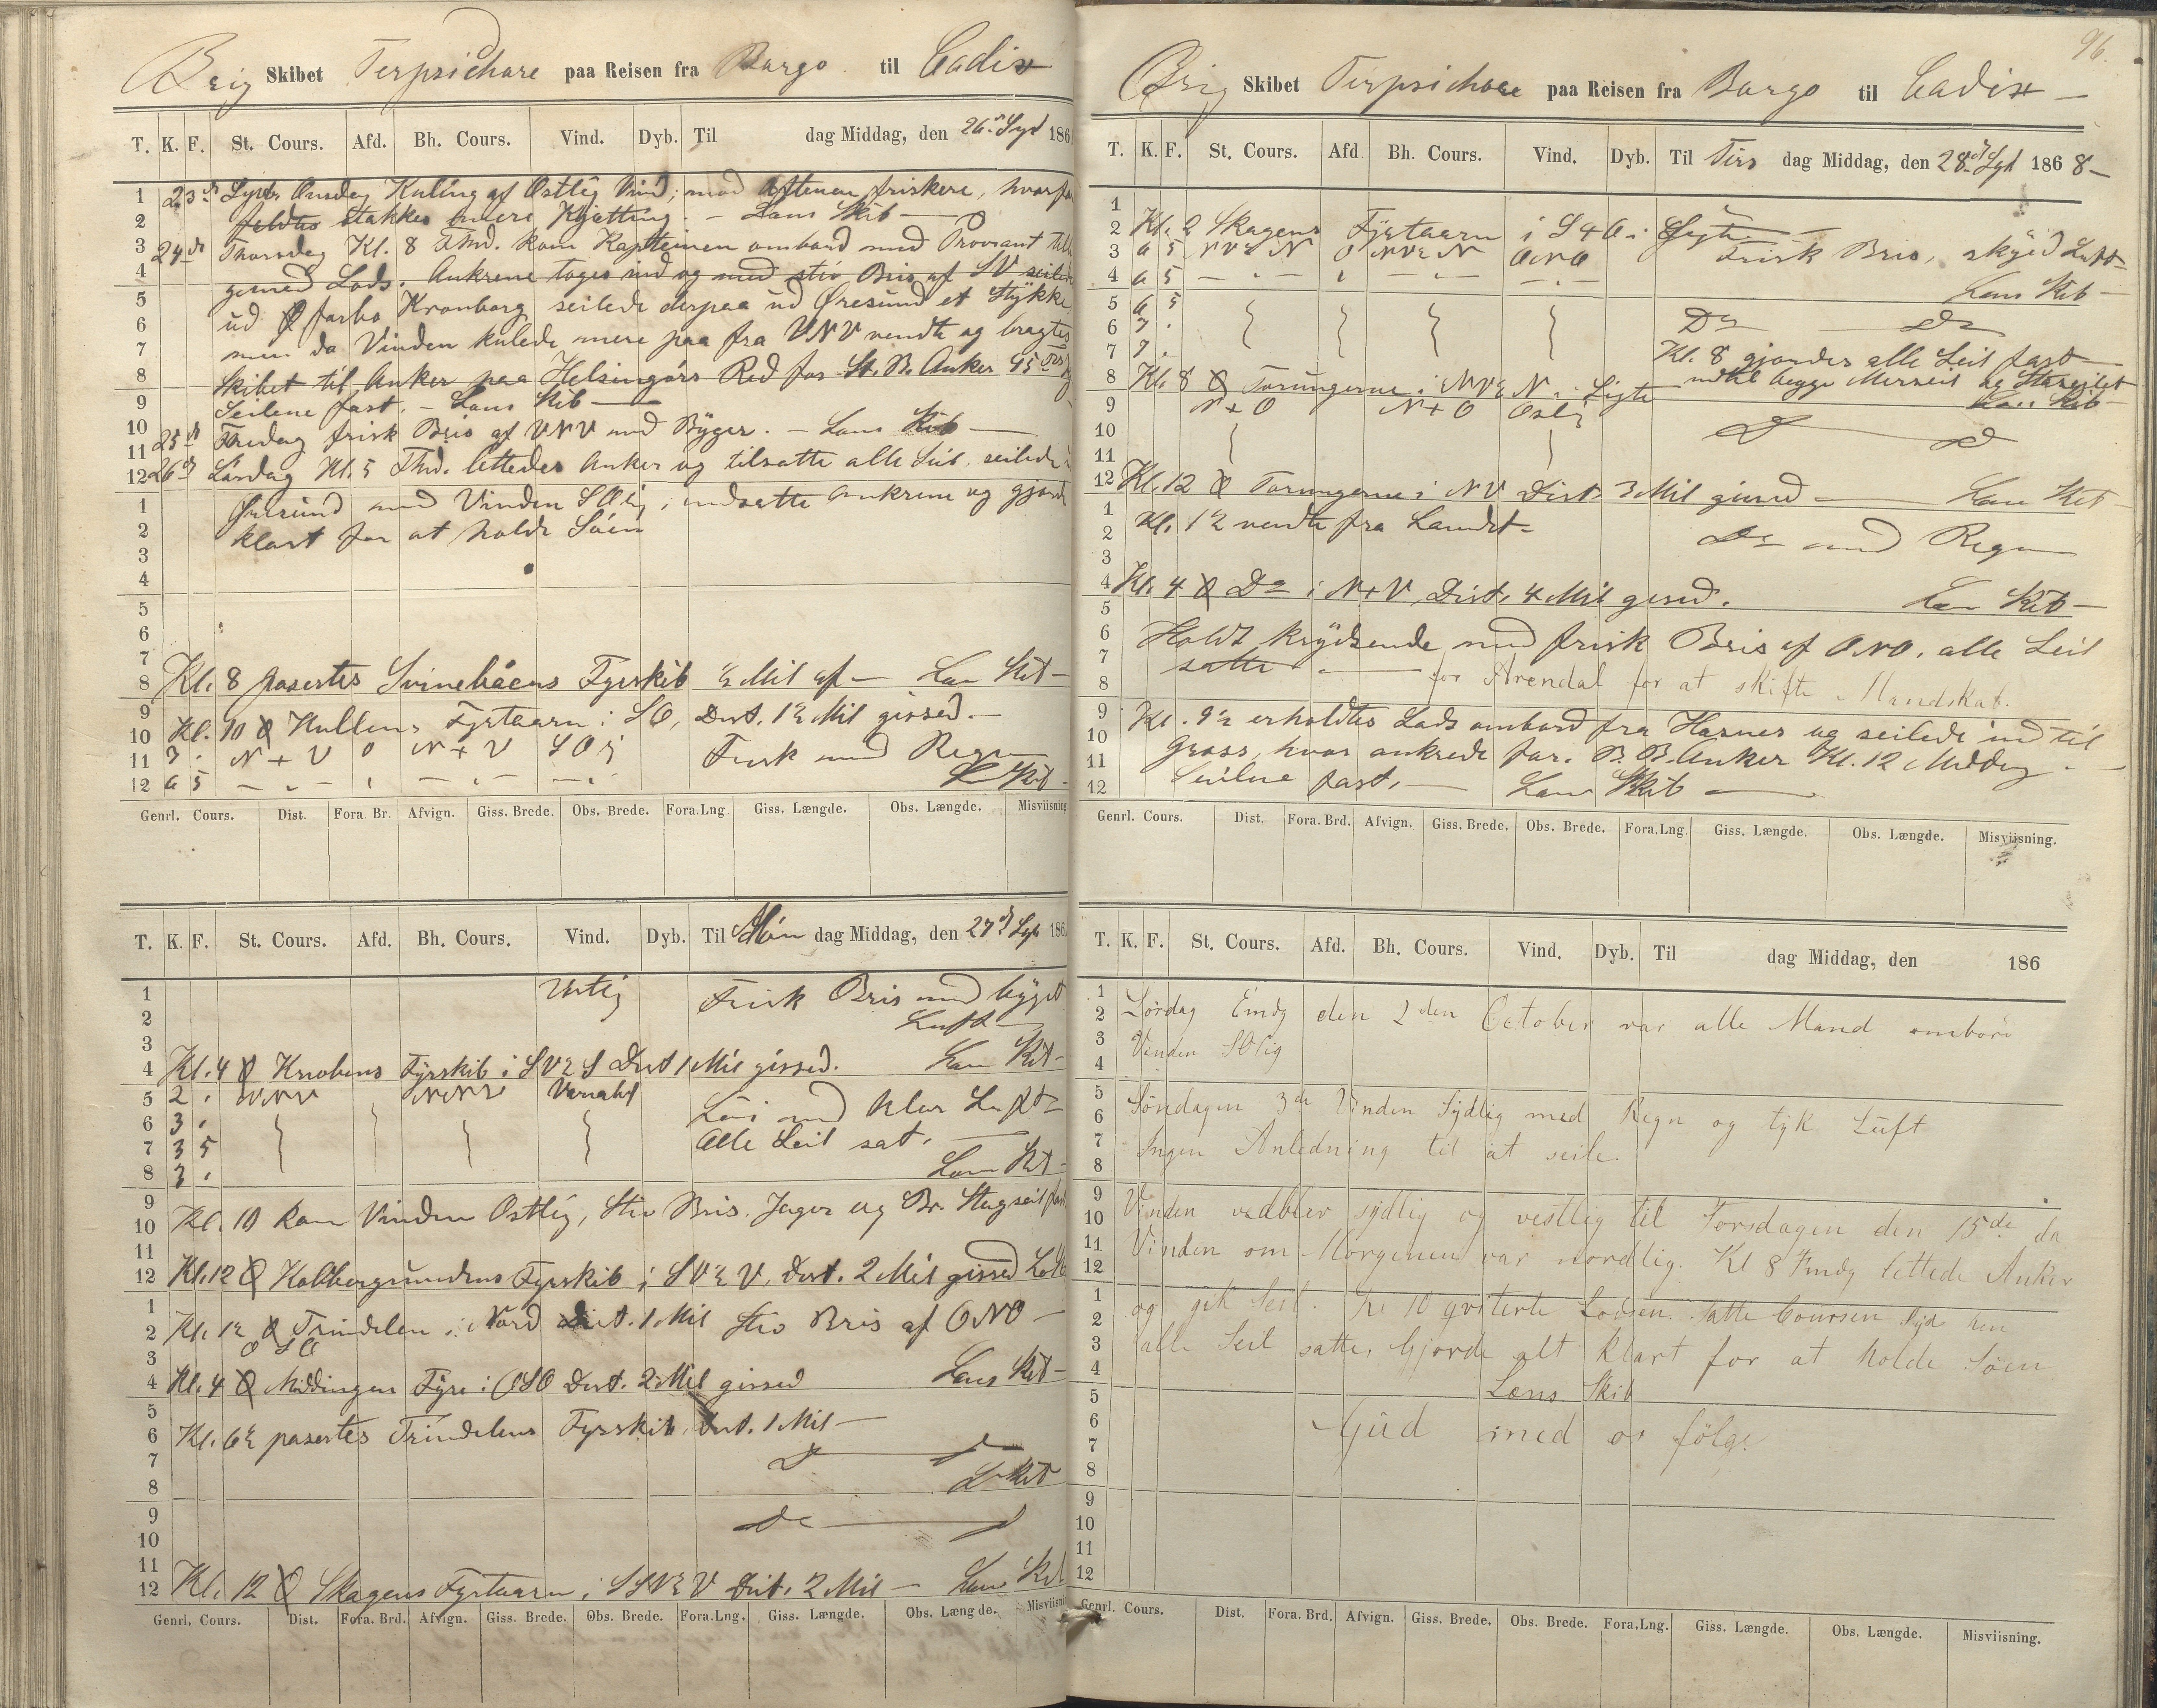 Brig Skibet Terpsichore paa Reisen fra Borgo til Cadix
T. K. F. St. Cours. Afd. Bh. Cours. Vind. Dyb. Til dag Middag, den 26de 186
1 23de Onsdag Kuling af Ostlig Vind, mod Aftenen friskere, hvorfor
2 stakkes mere Kjætting. – Lens Skib –
3 24de Thorsdag Kl. 8 Fmd. kom Kapteinen ombord med Proviant
4 Lods. Ankrene toges ind og med stiv Bris af SV seilede
5 ud forbo Kronborg, seilede derpaa ud Øresund et Stykke
6 men da Vinden kulede mere paa fra VNV vendte og bragtes
7 Skibet til Anker paa Helsingörs Red for St. B. Anker 45
8 Seilene fast. – Lens Skib –
9
10 25de Fredag frisk Bris af VNV med Byger. – Lens Skib –
11
12 26de Lördag Kl. 5 Fmd. lettedes Anker og tilsatte alle Seil, seilede
1 Öresund med Vinden SOlig, indsatte Ankrene og gjorde
2 klart for at holde Söen
3
4
5
6
7
8 Kl. 8 passertes Svinebaaens Fyrskib ½ Mil af – Lens Skib –
9
10 Kl. 10 Kullens Fyrtaarn i SO, Dist. 1½ Mil gissed. –
11 7 . N t V 0 N t V SOlig Frisk med Regn
12 6 5 – „ – – „ – – „ – Skib –
Genrl. Cours. Dist. Fora. Br. Afvign. Giss. Brede. Obs. Brede. Fora. Lng Giss. Længde. Obs. Længde. Misviisning
T. K. F. St. Cours. Afd. Bh. Cours. Vind. Dyb. Til Món dag Middag, den 27de 186
1 Vestlig Frisk Bris med byget
2 Luft –
3
4 Kl. 4 Knobens Fyrskib i SV½S Dist 1 Mil gissed. Lens Skib –
5 2 . NNV NNV Variabel
6 3 . Löi med klar Luft
7 3 5 Alle Seil sat. –
8 3 . Lens Skib –
9
10 Kl. 10 kom Vinden Ostlig, Stiv Bris. Jager og Br. Stagseil fast
11
12 Kl. 12 Kobbergrundens Fyrskib i SV½V, Dist. 2 Mil gissed
1
2 Kl. 1½ Trindelen i Nord Dist. 1 Mil Stiv Bris af ONO –
3 O SO
4 Kl. 4 Niddingen Fyre i OSO Dist. 2 Mil gissed Lens Skib –
5
6 Kl. 6½ passertes Trindelens Fyrskib, Dist. 1 Mil –
7
8 L Skib
9
10
11
12 Kl. 12 Skagens Fyrtaarn i SSV½V Dist. 2 Mil – Lens Skib
Genrl. Cours. Dist. Fora. Brd. Afvign. Giss. Brede. Obs. Brede. Fora. Lng. Giss. Længde. Obs. Længde. Misviisni
96.
Brig Skibet Terpsichore paa Reisen fra Borgo til Cadix –
T. K. F. St. Cours. Afd Bh. Cours. Vind. Dyb. Til Tirs dag Middag, den 28de 1868 –
1
2 Kl. 2 Skagens Fyrtaarn i StO i Sigte –
3 6 5 NV½N 0 NV½N ONO Frisk Bris, skyed Luft
4 6 5 – „ – – „ – – „ – Lens Skib –
5 6 5
6 7 . Do Do
7 7 . Kl. 8 gjordes alle Seil fast
8 Kl. 8 Torungerne i NV½N i Sigte indtil begge Merseil og Stagseilet
9 N t O N t O Ostlig Lens Skib –
10
11
12 Kl. 12 Torungerne i NV Dist 3 Mil gissed – Lens Skib
1
2 Kl. 1½ vendte fra Landet Do med Regn
3
4 Kl. 4 Do i NtV, Dist. 4 Mil gissed. Lens Skib –
5
6 Holdt krydsende med frisk Bris af ONO. alle Seil
7 satte – for Arendal for at skifte Mandskab.
8
9 Kl. 9½ erholdtes Lods ombord fra Havnes og seilede ind til
10 Gross, hvor ankrede for B. B. Anker Kl. 12 Middag –
11 Seilene fast. – Lens Skib –
12
Genrl. Cours. Dist. Fora. Brd. Afvign. Giss. Brede. Obs. Brede. Fora. Lng. Giss. Længde. Obs. Længde. Misviisning.
T. K. F. St. Cours. Afd. Bh. Cours. Vind. Dyb. Til dag Middag, den 186
1
2 Lördag Emdg den 2den October var alle Mand ombord
3 Vinden SOlig
4
5
6 Söndagen 3de Vinden Sydlig med Regn og tyk Luft
7 Ingen Anledning til at seile.
8
9
10 Vinden vedblev sydlig og vestlig til Torsdagen den 15de da
11 Vinden om Morgenen var nordlig. Kl 8 Fmdg lettede Anker
12
1 og gik Seil. Kl 10 qviterte Lodsen. Satte Coursen Syd hen
2
3 alle Seil satte, Gjorde alt klart for at holde Söen
4 Lens Skib
5
6 Gud med os følge
7
8
9
10
11
12
Genrl. Cours. Dist. Fora. Brd. Afvign. Giss. Brede. Obs. Brede. Fora. Lng. Giss. Længde. Obs. Længde. Misviisning.